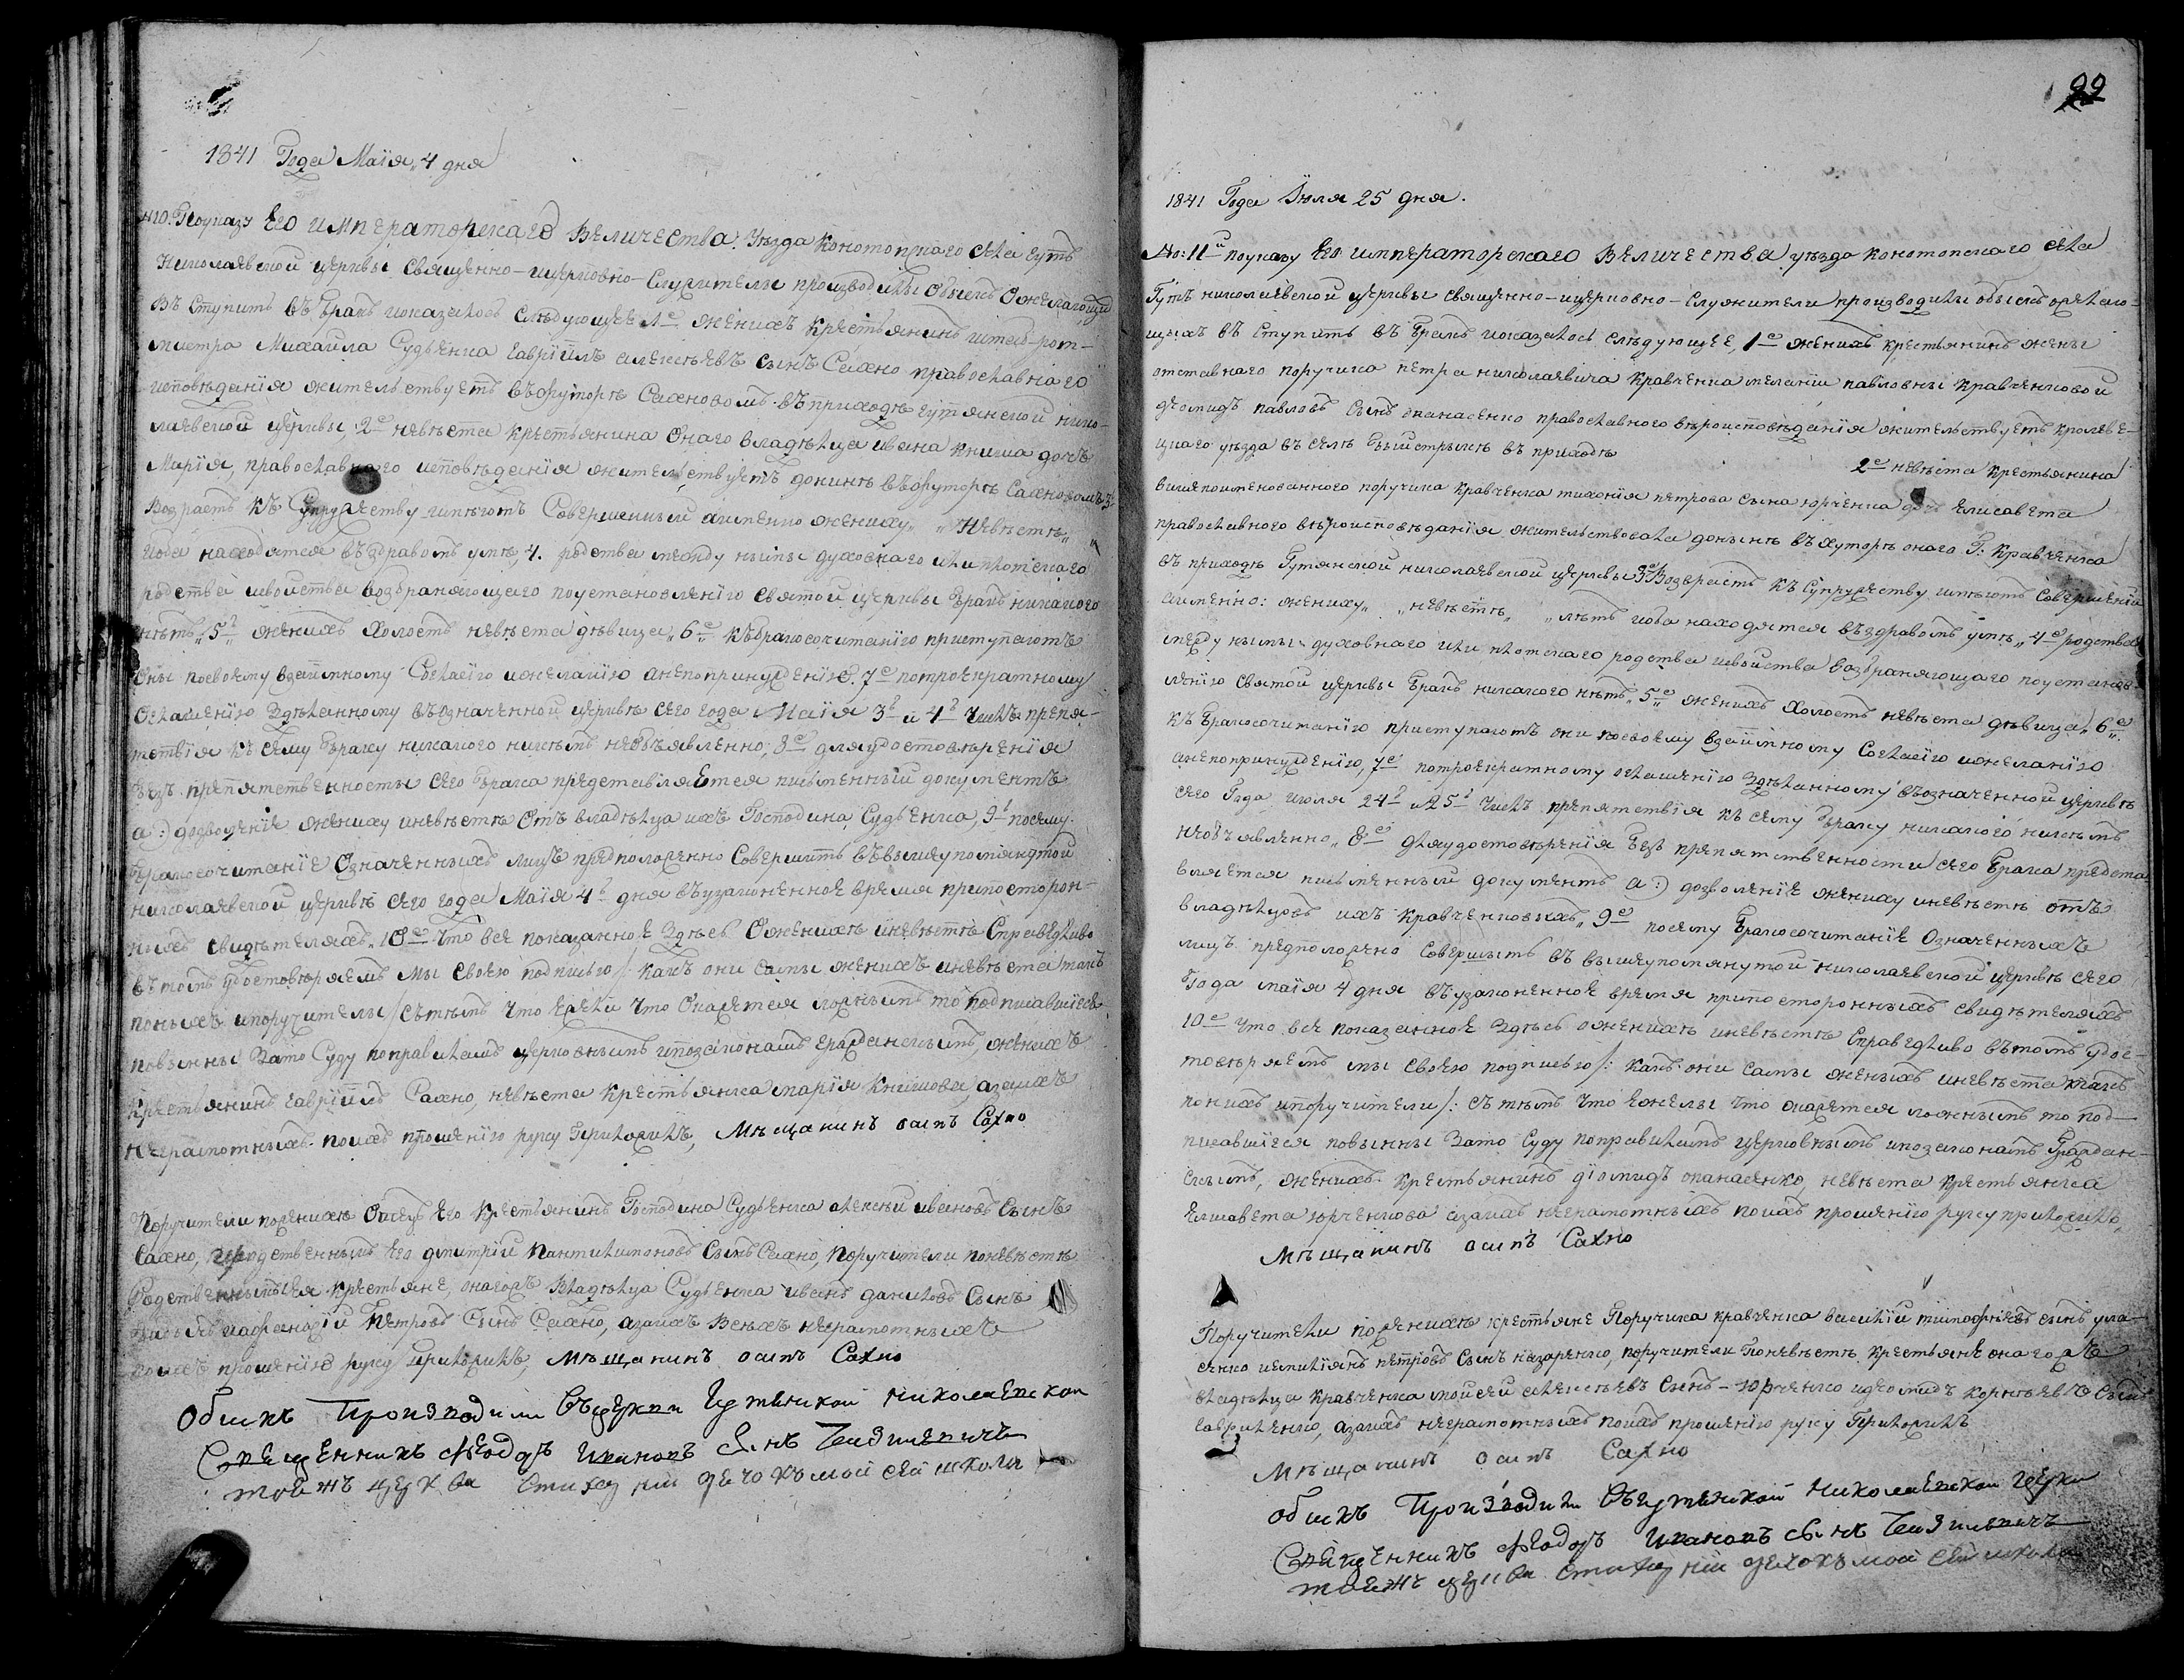 1841 Года Маія 4 дня
№10. Поуказу Его императорскаго Величества. Уезда Конотопскаго села Гутъ
Николаевской церквы Священно-ицерковно-Служителы производылы Обыскъ Ожелающи
въ Ступить въ Бракъ иоказалось следующее 1е женихъ Крестьянинъ штабъ-рот-
мистра Михаила Судьенка Гавріилъ алексеевъ сынъ Сахно православнаго
исповеданія жительствуетъ въхуторе Сахновомъ въприходе гутянской нико-
лаевской церквы, 2е невеста Крестьянина Онаго владельца ивана книша дочь
Марія, православнаго исповеданія жительствуетъ донине въхуторе Сахновомъ 3е
Возрастъ къ Супружеству имеютъ Совершенный аименно жениху „ „ Невесте „ „
иоба находятся въздравомъ уме, 4. родства между нымы духовнаго или плотскаго
родства исвойства возбраняющаго поустановленію святой церквы Бракъ никакого
нетъ „5е женихъ Холостъ невеста девица „6е къбракосочитанію приступаютъ
Оны посвоему взаимному Согласію ижеланію анепопринужденію. 7е потроекратному
Оглашенію зделанному въозначенной церкве сего года Маія 3го и 4го числъ препя-
тствія къ сему Браку никакого никемъ необъявленно, 8е дляудостовъренія
Безъ препятственносты сего Брака представляется писменный документъ
а:) дозволеніе жениху иневесте Отъ владельца ихъ Господина Судьенка, 9е посему
Бракосочитаніе Означенныхъ лицъ предположенно Совершить въвышеупомянутой
николаевской церкве сего года Маія 4го дня въузаконенное время припосторон-
нихъ свидетеляхъ. 10е Что все показанное Здесь Оженихе иневесте Справедливо
въ томъ удостоверяемъ мы своею подписью /: какъ они самы женихъ иневеста такъ
поныхъ ипоручителы /: Стемъ Что Ежели Что Окажется ложнымъ то подписавшіеся
повынны Зато Суду поправиламъ церковнымъ ипозаконамъ гражданскымъ, женихъ
Крестьянинъ гавріилъ Сахно, невеста Крестьянка марія Книшова, азаихъ
неграмотныхъ поихъ прошенію руку Приложилъ, Мещанинъ осипъ Сахно
Поручители поженихе Отецъ его Крестьянинъ Господина Судьенка алексей ивановъ Сынъ
Сахно, родственныкъ его дмитрій Пантилимоновъ Сынъ Сахно, поручители поневесте
Родственныкы ея крестьяне, онагожъ Владельца Судьенка иванъ даниловъ Сынъ
иафанасій Петровъ Сынъ Сахно, азаихъ Всехъ неграмотныхъ
поихъ прошенію руку Приложилъ, мещанинъ осипъ Сахно
Обискъ Производили Гутянской николаевской
Священникъ Феодоръ Ивановъ Синъ
тоижъ церкви

22
1841 Года Іюля 25 дня.
№: 11й поуказу Его императорскаго Величества уезда конотопскаго села
Гутъ николаевской церквы священно-ицерковно-служители производылы обыскъ ожелаю-
щыхъ въ Ступить въ Бракъ иоказалось следующее, 1е женихъ крестьянинъ жены
отставнаго поручика петра николаевича Кравченка меланіи павловны Кравченковой
діомидъ павловъ Сынъ опанасенко православного вероисповеданія жительствуетъ кролеве-
цкаго уезда въ селе Быстрыке въ приходе
2е невеста Крестьянина
вишепоименованного поручика Кравченка тихонія петрова сына юрченка дочъ Елисавета
православного вероисповеданія жительствовала донине въ хуторе онаго Г: Кравченка
въ приходе Гутянской николаевской церквы 3е Возврастъ къ Супружеству имеютъ Совершеній
аименно: жениху „ „ невесте „ „ летъ иоба находятся въздравомъ уме „ 4е родства
между нымы духовнаго или плотскаго родства исвойства возбраняющаго поустанов-
ленію святой церквы Бракъ никакого нетъ „ 5е женихъ Холостъ невеста девица „ 6е
къ Бракосочитанію приступаютъ они посвоему взаимному Согласію ижеланію
анепопринужденію, 7е потроекратному оглашенію зделанному въозначенной церкве
сего Года июля 24го и 25го числъ препятствія къ сему Браку никакого никемъ
необъявленно „ 8е дляудостоверенія Безъ препятственности сего Брака предста-
вляется писменный документъ а:) дозволеніе жениху иневесте отъ
владельцовъ ихъ Кравченковыхъ „ 9е посему Бракосочитаніе Означенныхъ
лицъ предположено Совершыть въ вышеупомянутой николаевской церкве сего
Года маія 4 дня въузаконенное время припосторонныхъ свидетеляхъ
10е Что все показанное Здесь оженихе иневесте Справедливо въ томъ удос-
товеряемъ мы своею подписью /: какъ они самы женыхъ иневеста такъ
понихъ ипоручители /: Стемъ Что Ежелы Что окажется ложнымъ то под-
писавшіеся повынны Зато Суду поправиламъ Церковнымъ ипозаконамъ Граждан-
скымъ, женихъ Крестьянинъ діомидъ опанасенко, невеста крестьянка
Елисавета юрченкова азаихъ неграмотныхъ поихъ прошенію руку приложилъ
Мещанинъ осипъ Сахно
Поручители поженихе крестьяне Поручика кравченка василій тимофеевъ сынъ
иемиліянъ петровъ Сынъ назаренко, поручители Поневесте крестьяне онагожъ
владельца Кравченка моисей алексеевъ Сынъ - юрченко идіомидъ корнеевъ Сынъ
гавриленко, азаихъ неграмотныхъ поихъ прошенію руку Приложилъ
Мещанинъ осипъ Сахно
обискъ Производили Гутянской Николаевской церкви
Священникъ Феодоръ Ивановъ Синъ
тоижъ церкви